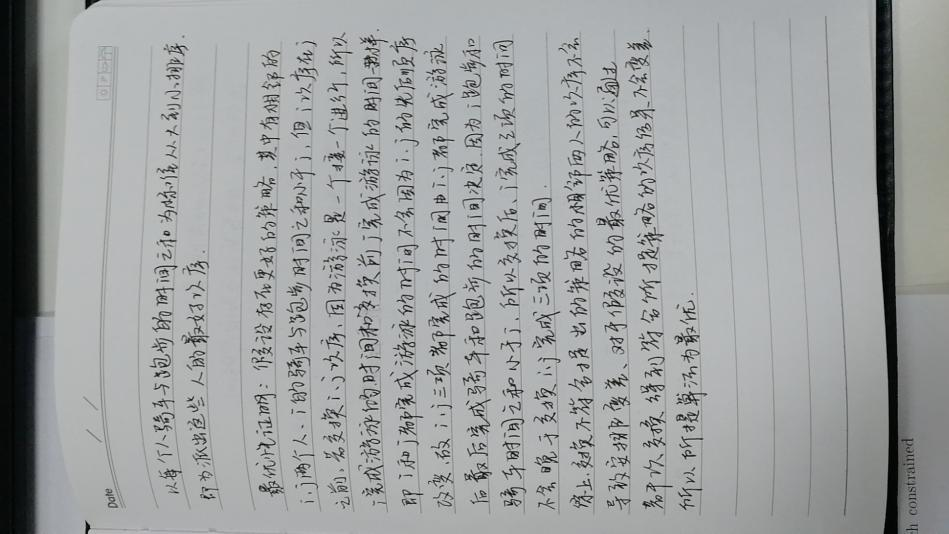 Date
以每个人骑车与跑步的时间之和为标准从大到小排序.
即为派出这些人的最好次序.
最优化证明: 假设存在更好的策略, 其中有相邻的
i.j两个人. i的骑车与跑步时间之和小于j, 但i次序在j
之前, 若交换i.j次序, 因为游泳是一个接一个进行, 所以
完成游泳的时间和交换前j完成游泳的时间一样.
即i和j都完成游泳的时间不会因为i.j的先后顺序
改变. 故i.j三项都完成的时间由i.j都完成游泳
后最后完成骑车和跑步的时间决定. 因为i跑步和
骑车时间之和小于j. 所以交换后, i完成三项的时间
不会晚于交换i.j完成三项的时间.
综上交换不符合提出的策略的相邻两人的次序不会
导致安排变差, 对于假设的最优策略, 可以通过
若干次交换得到符合所提策略的次序结果不会变差.
所以所提算法为最优.
ch constrained